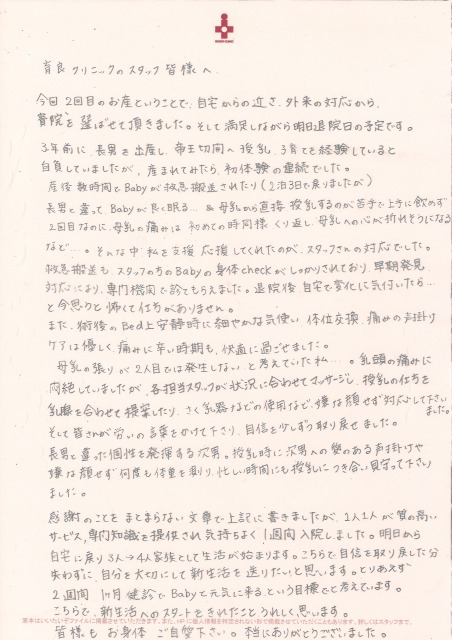 育良クリニックのスタッフ皆様へ
今回2回目のお産ということで、自宅からの近さ、外来の対応から、
貴院を選ばせて頂きました。そして満足しながら明日退院日の予定です。
3年前に、長男を出産し、帝王切開へ授乳、子育てを経験していると
自負していましたが、産まれてみたら、初体験の連続でした。
産後数時間でBabyが救急搬送されたり(2泊3日で戻りましたが)
長男と違って、Babyが良く眠る… & 母乳から直接授乳するのが苦手で上手に飲めず
2回目なのに、母乳の痛みは初めての時同様くり返し、母乳への心が折れそうになる
など…。そんな中、私を支援、応援してくれたのが、スタッフさんの対応でした。
救急搬送も、スタッフの方のBabyの身体checkがしっかりされており、早期発見、
対応により、専門機関で診てもらえました。退院後、自宅で変化に気付いたら…
と今思うと怖くて仕方がありません。
また、術後のBed上安静時に細やかな気使い、体位交換、痛みの声掛け
ケアは優しく、痛みに辛い時期も、快適に過ごせました。
母乳の張りが2人目では発生しない、と考えていた私…。乳頭の痛みに
悶絶していましたが、各担当スタッフが状況に合わせてマッサージし、授乳の仕方を
乳腺を合わせて提案したり、さく乳器などの使用など、嫌な顔せず対応して下さい
ました。
そして皆さんが労いの言葉をかけて下さり、自信を少しずつ取り戻せました。
長男と違った個性を発揮する次男。授乳時に次男への愛のある声掛けや
嫌な顔せず何度も体重を測り、忙しい時間にも授乳につき合い見守って下さい
ました。
感謝のことをまとまらない文章で上記に書きましたが、1人1人が質の高い
サービス、専門知識を提供され気持ちよく1週間入院しました。明日から
自宅に戻り3人→4人家族として生活が始まります。こちらで自信を取り戻した分
失わずに、自分を大切にして新生活を送りたいと思います。とりあえず
2週間、1ヶ月健診でBabyと元気に来るという目標でと考えています。
こちらで、新生活へのスタートをきれたことうれしく思います。
皆様もお身体ご自愛下さい。本当にありがとうございました。